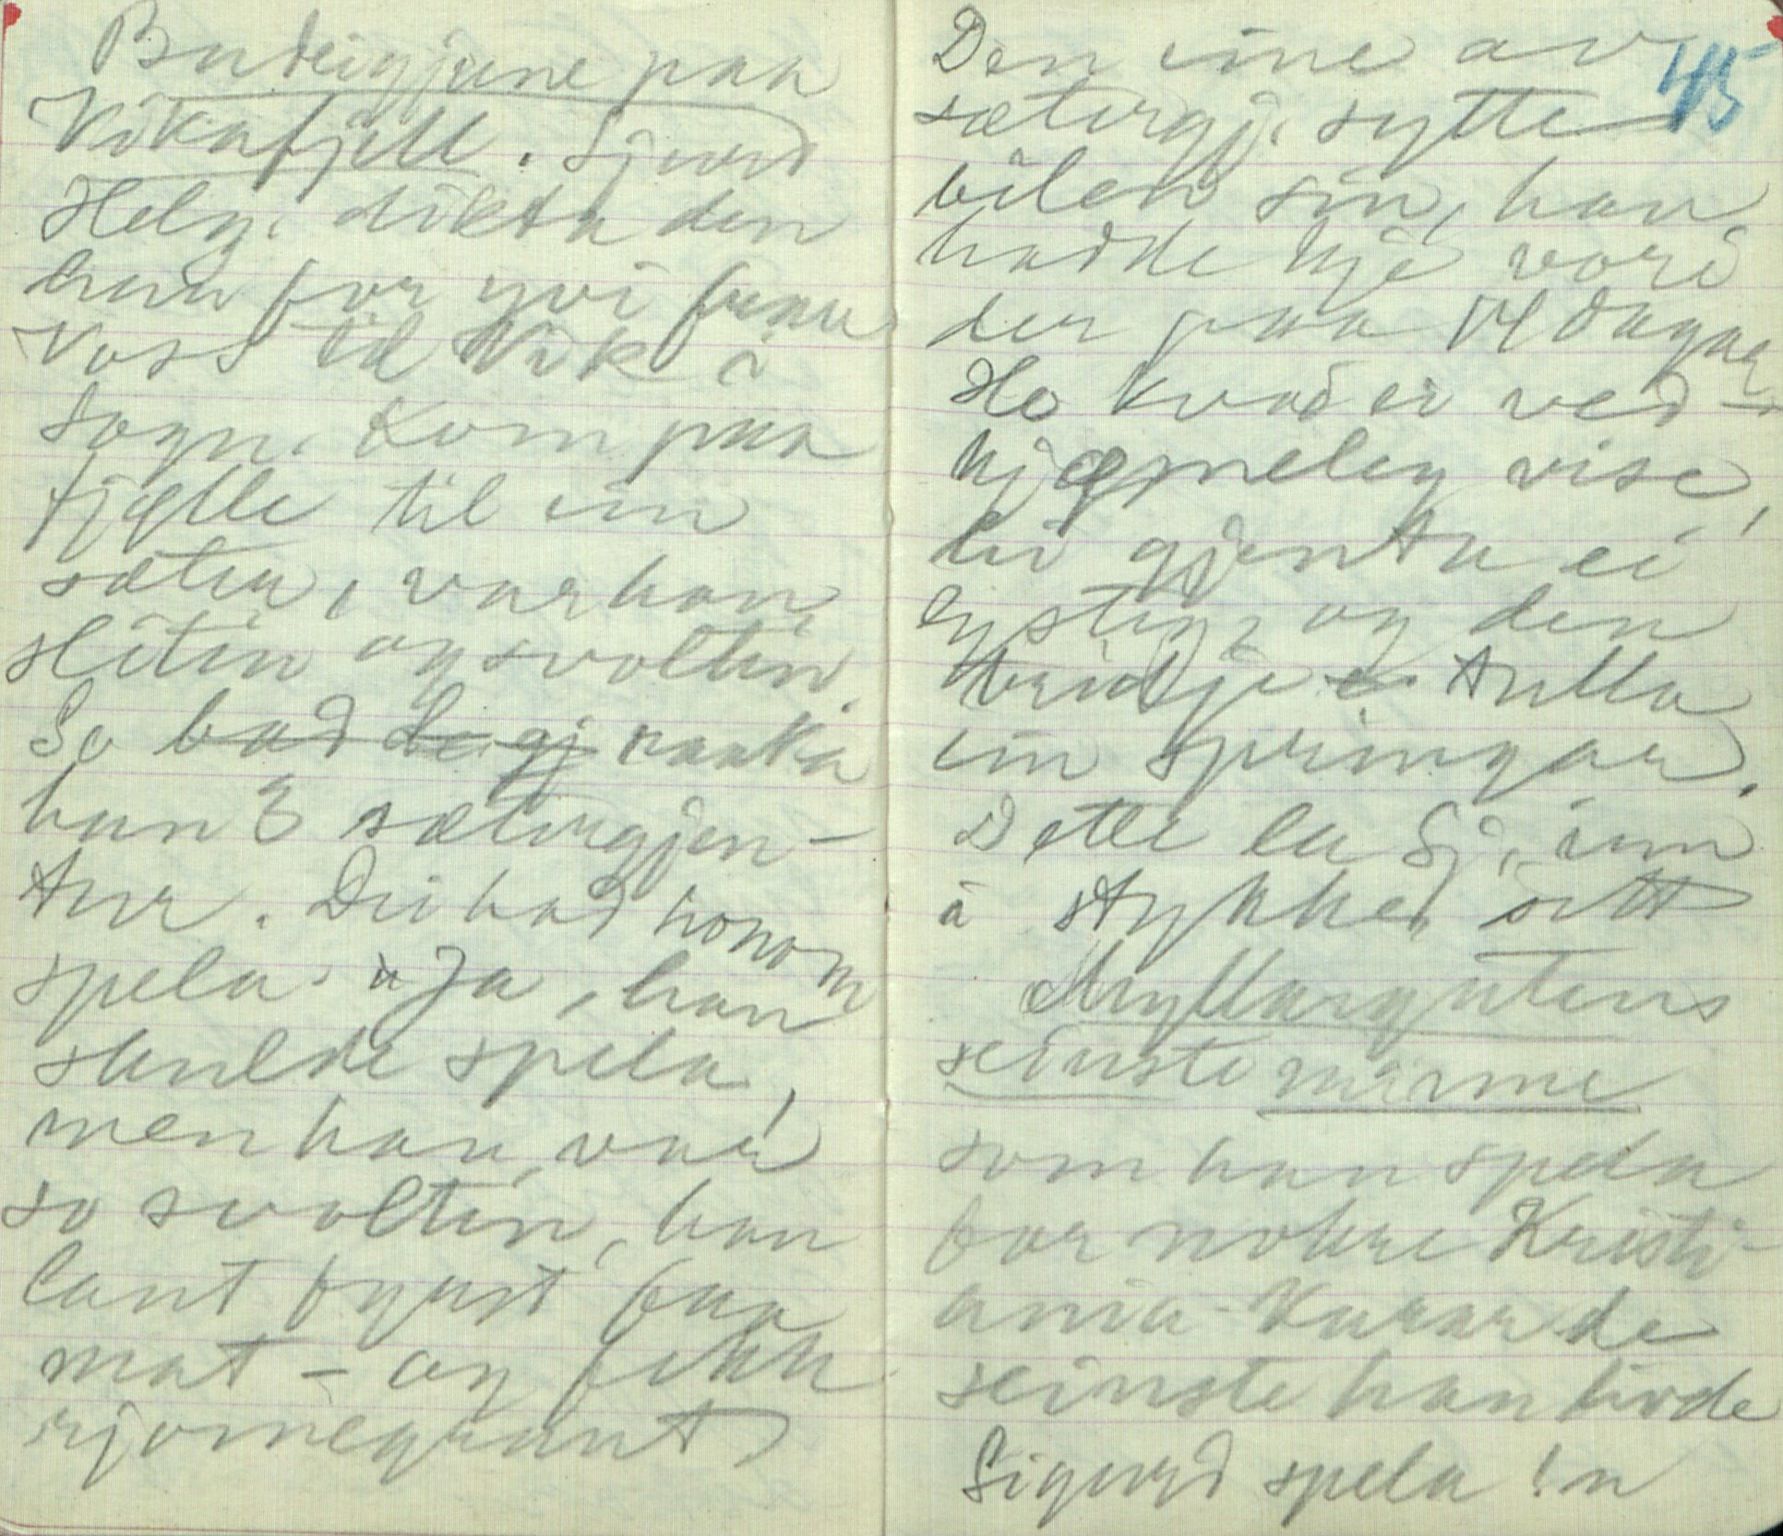 Budeigjune paa
Vikafjell. Sjurd
Helg. dikta den
han for yvi fraa
Voss til Vik i
Sogn. Kom paa
fjelle til ein
sæter, var han
sliten og svolten.
So bad dei gj raaka
han 3 sætergjen-
tur. Dei bad honom
spela. "Ja, han
skulde spela,
men han var
so svolten, han
laut fyrst faa
mat – og fekk
rjomegraut
Den eine av
sætergj. sytte
bilen sin, han
hadde kje vore
der paa 14 dagar
Ho kvad ei ved-
kjømeleg vise,
ei gjenta ei
lystig, og den
tridje tulla
ein springar.
Dette la Sj. inn
i stykket sitt
Myllargutens
seinste minne
som han spela
for nokre Kristi-
ania-karar de
seinste han livde
Sigurd spela 'n
45